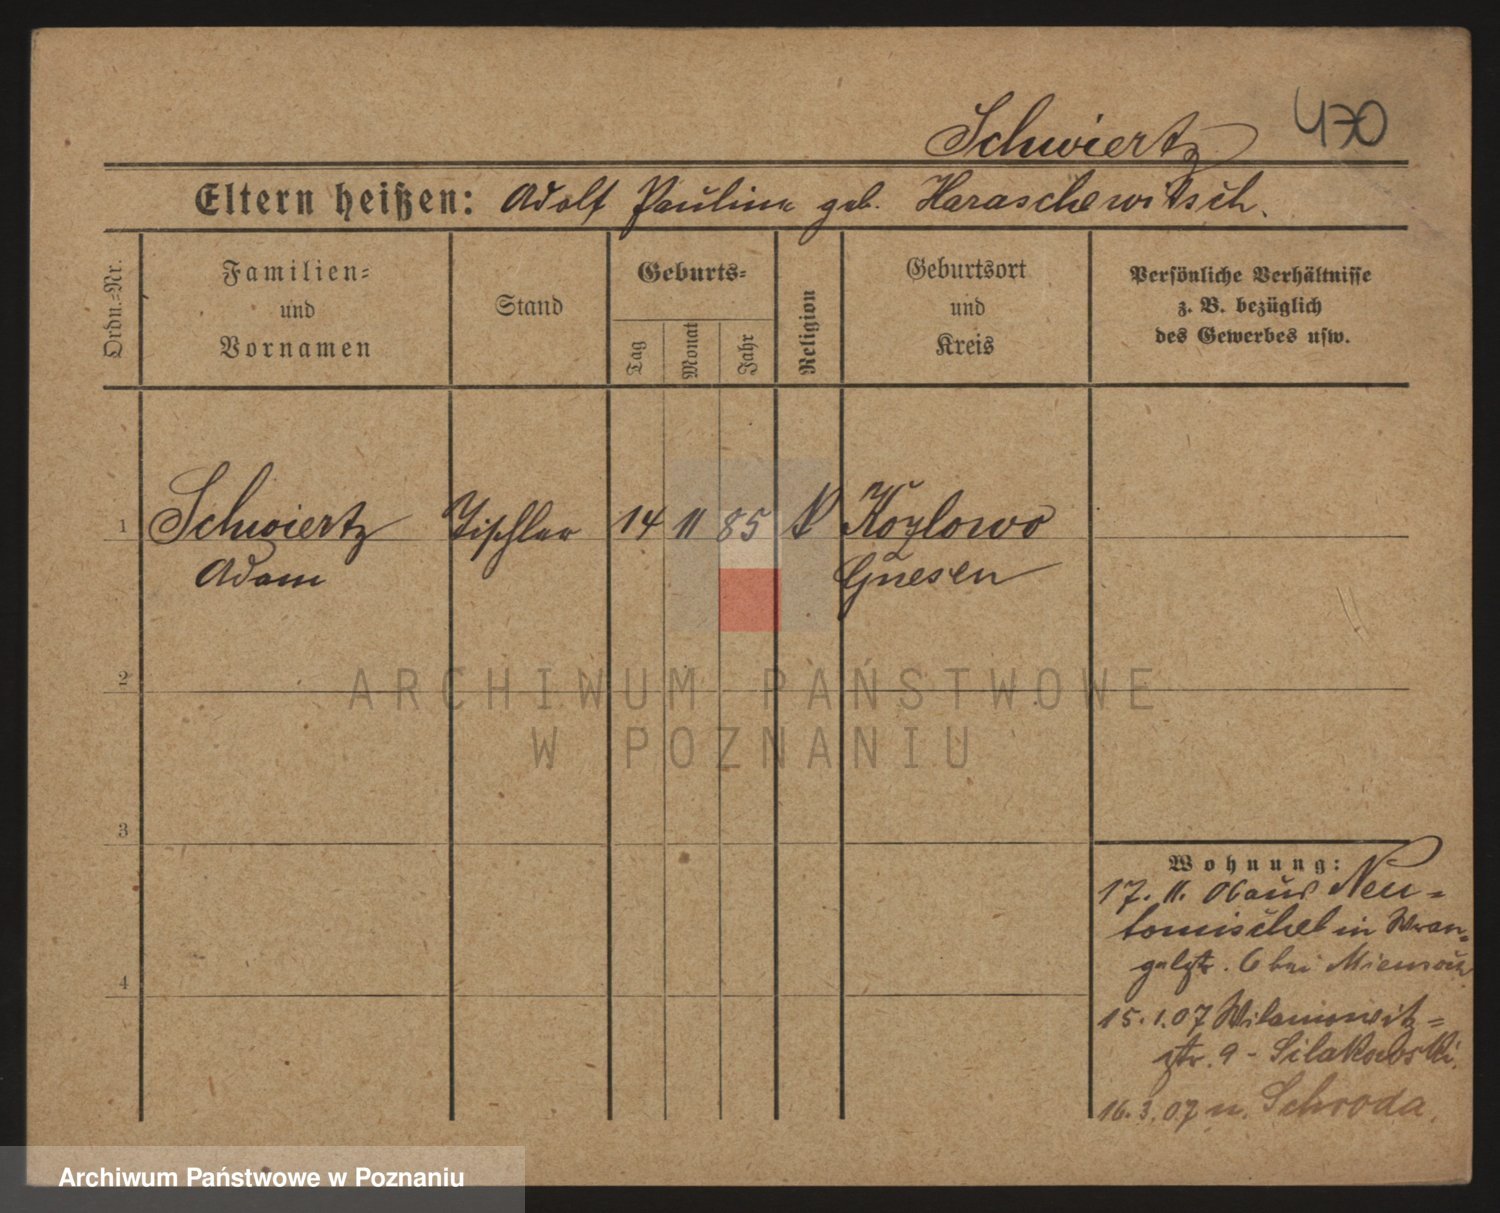 Schwiertz 470
Eltern heißen: Adolf Pauline geb. Haraschewitsch.
Ordn.=Nr.
Familien=
und
Vornamen
Stand
Geburts=
Tag
Monat
Jahr
Religion
Geburtsort
und
Kreis
Persönliche Verhältnisse
z. B. bezüglich
des Gewerbes usw.
1 Schwiertz Tischler 14 11 85 Kozlowo
Adam Gnesen
2
3
4
Wohnung:
17. 11. 06 aus Neu=
tomischel in Wran=
gelstr. 6 bei
15.1.07 Wilamowitz=
str. 9 -
16.3.07 n. Schroda.
ARCHIWUM PAŃSTWOWE
W POZNANIU
Archiwum Państwowe w Poznaniu